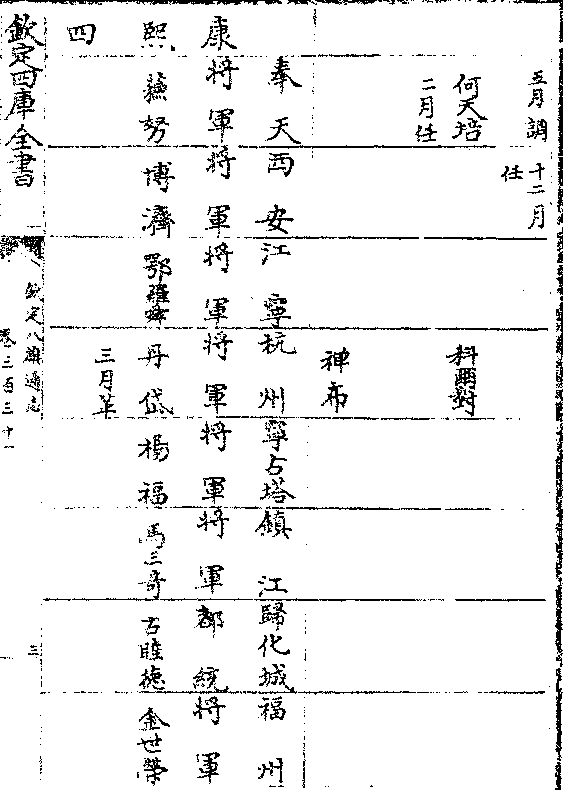 五月調 十二月
任
何天培 科爾對
二月任
神布
奉天 西安 江寧 杭州 寧古塔 鎮江 歸化城 福州
康 將軍 將軍 將軍 將軍 將軍 將軍 都統 將軍
熙 蘇努 博濟 鄂羅舜 丹岱 楊福 馬三奇 古睦德 金世榮
三月
四
欽定四庫全書
欽定八旗通志
卷三百三十一 三